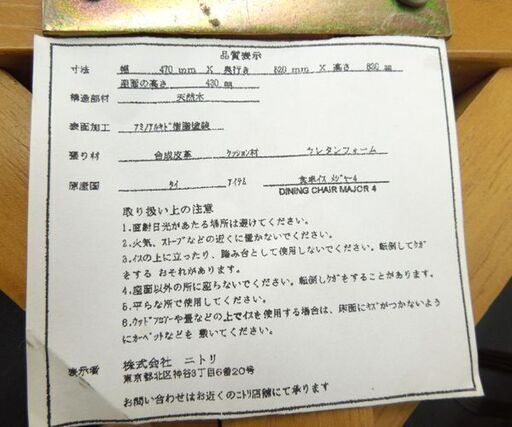 品質表示
寸法 幅 470 mm X 奥行き 520 mm X 高さ 830 mm
座面の高さ 430 mm
構造部材 天然木
表面加工 アミノアルキド樹脂塗装
張り材 合成皮革 クッション材 ウレタンフォーム
原産国 タイ アイテム 食卓イス メジャー4
DINING CHAIR MAJOR 4
取り扱い上の注意
1.直射日光があたる場所は避けてください。
2.火気、ストーブなどの近くに置かないでください。
3.イスの上に立ったり、踏み台として使用しないでください。転倒してケガ
をする おそれがあります。
4.座面以外の所に座らないでください。転倒しケガをすることがあります。
5.平らな所で使用してください。
6.ウッドフロアーや畳などの上でイスを使用する場合は、床面にキズがつかないよう
にカーペットなどを 敷いてください。
表示者 株式会社 ニトリ
東京都北区神谷3丁目6番20号
お問い合わせはお近くのニトリ店舗にて承ります